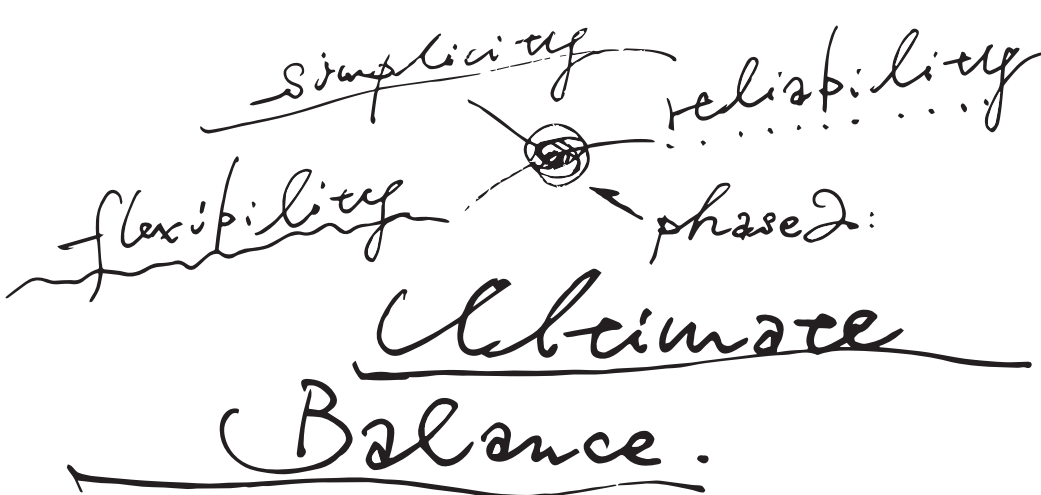 simplicity
reliability
flexibility
phase2:
Ultimate
Balance.